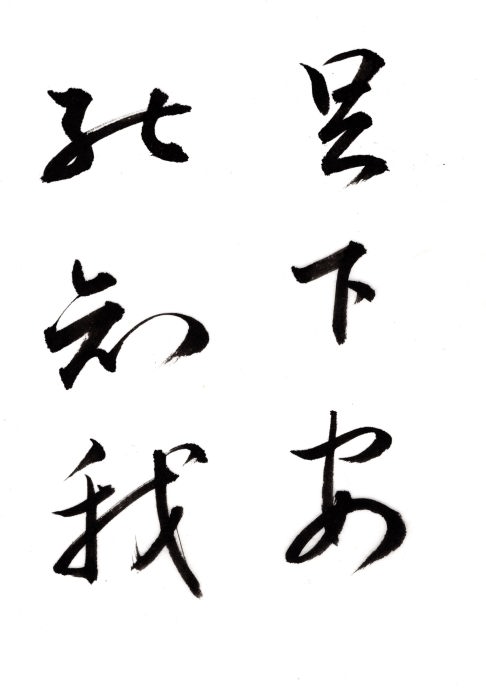 足下安
能知我